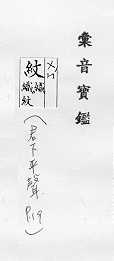 彙音寶鑑
紋
織紋
（君下平聲
P.19）